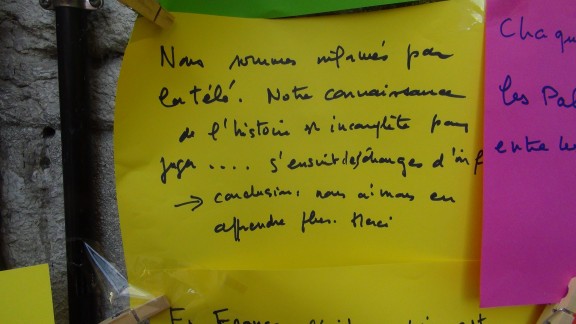 Nous sommes informés par
la télé. Notre connaissance
de l'histoire est incomplète pour
juger .... s'ensuit des échanges d'inf
→ conclusion, nous aimons en
apprendre plus. Merci
En France
Chaqu
les Pal
entre le